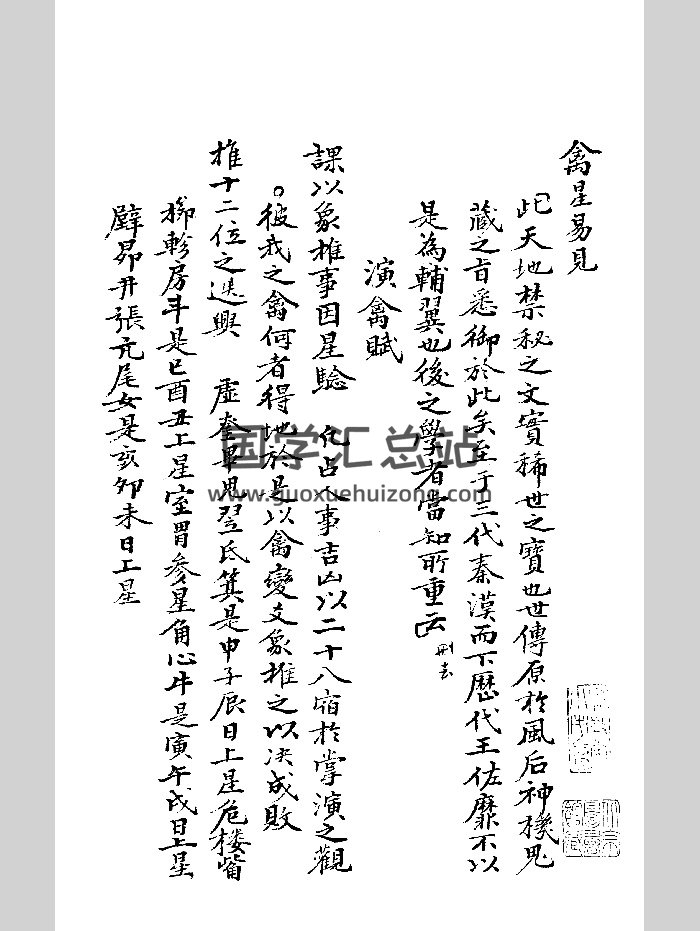 禽星易見
此天地禁秘之文實稀世之寶也世傳原於風后神機鬼
藏之旨悉御於此矣至于三代秦漢而下歷代王佐靡不以
是為輔翼也後之學者當知所重云 刪去
演禽賦
課以象推事因星驗 凡占人事吉凶以二十八宿於掌演之觀
彼我之禽何者得地於是以禽變爻象推之以决成敗
推十二位之迭興 虛奎畢鬼翌氐箕是申子辰日上星危楼觜
栁軫房斗是巳酉丑上星室胃參星角心牛是寅午戌日上星
壁昴井張亢尾女是亥卯未日上星
国学汇总站
www.guoxuehuizong.com